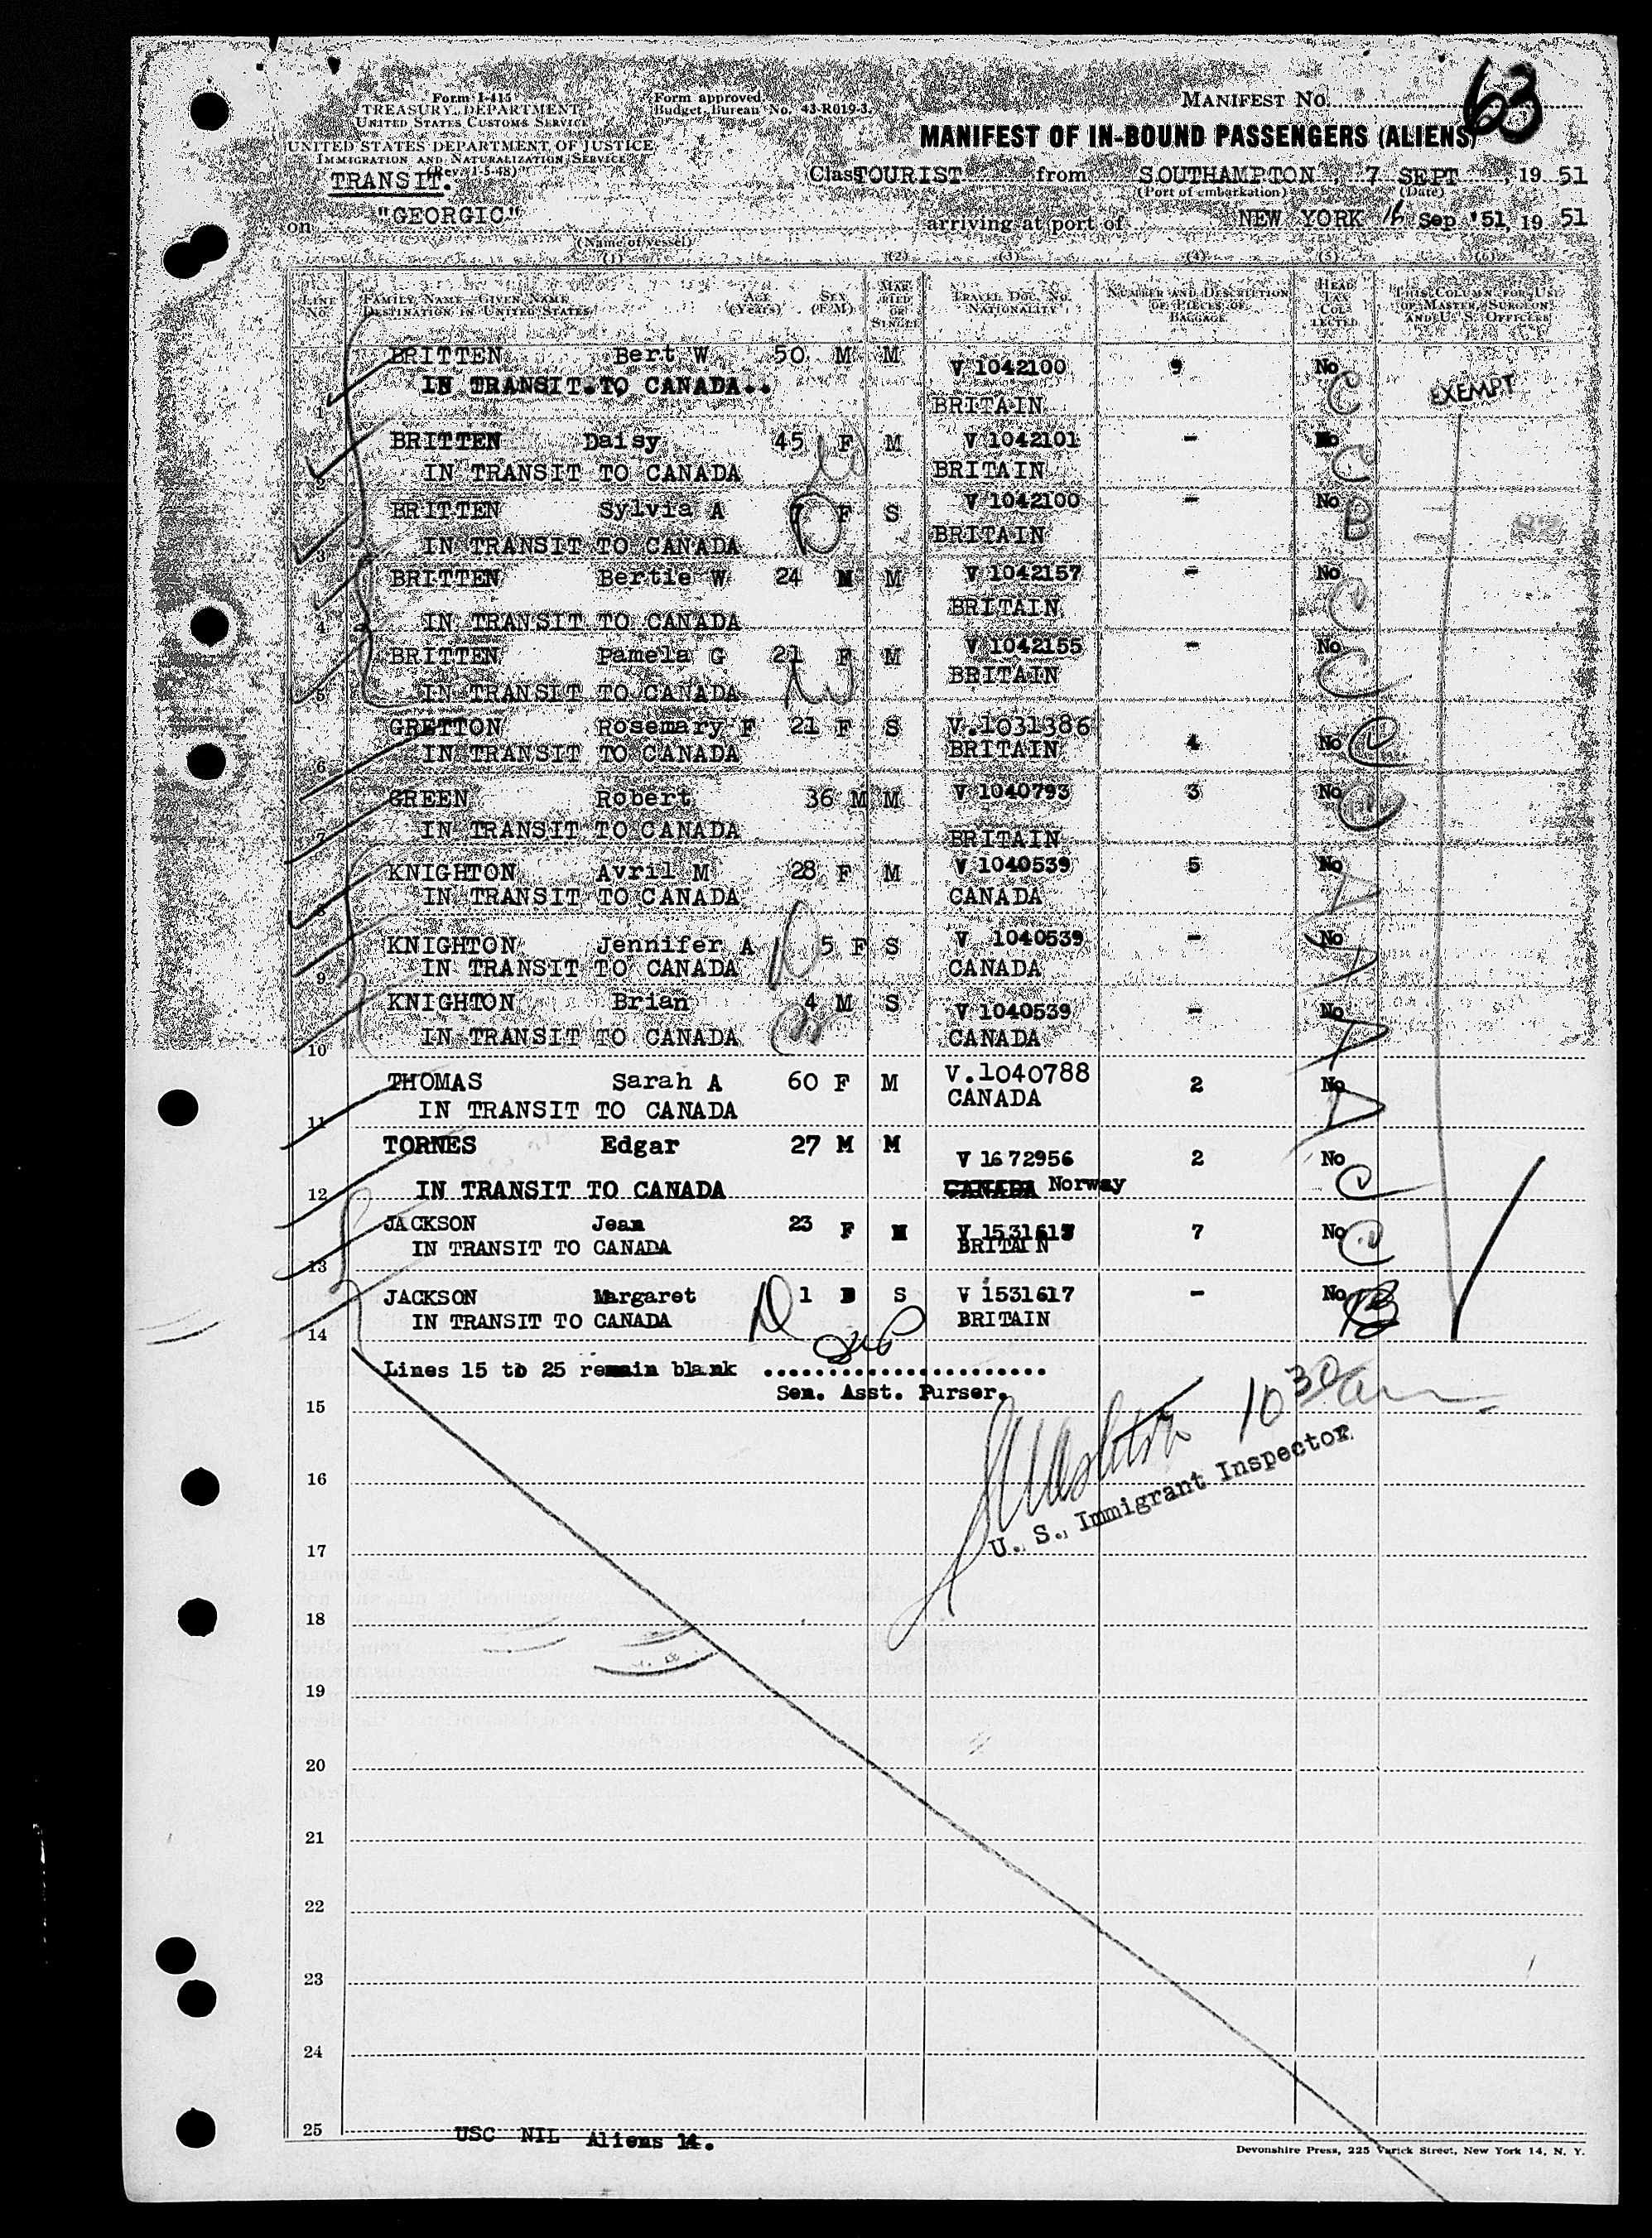 Form I-415
TREASURY DEPARTMENT
UNITED STATES CUSTOMS SERVICE
UNITED STATES DEPARTMENT OF JUSTICE
IMMIGRATION AND NATURALIZATION SERVICE
(Rev. 1-5-48)
Form approved.
Budget Bureau No. 43-R019-3.
MANIFEST No. 63
MANIFEST OF IN-BOUND PASSENGERS (ALIENS)
TRANSIT.
Class TOURIST from SOUTHAMPTON, 7 SEPT, 19 51
(Port of embarkation) (Date)
on "GEORGIC" arriving at port of NEW YORK 16 Sep '51, 19 51
(Name of vessel)
(1) (2) (3) (4) (5) (6)
LINE No. FAMILY NAME—GIVEN NAME DESTINATION IN UNITED STATES AGE (Years) SEX (F-M) MARRIED OR SINGLE TRAVEL DOC. No. NATIONALITY NUMBER AND DESCRIPTION OF PIECES OF BAGGAGE HEAD TAX COLLECTED THIS COLUMN FOR USE OF MASTER, SURGEON, AND U. S. OFFICERS
BRITTEN Bert W 50 M M V 1042100 9 No C EXEMPT
1 IN TRANSIT TO CANADA.. BRITAIN
BRITTEN Daisy 45 F M V 1042101 - No C
2 IN TRANSIT TO CANADA BRITAIN
BRITTEN Sylvia A 7 F S V 1042100 - No B
3 IN TRANSIT TO CANADA BRITAIN
BRITTEN Bertie W 24 M M V 1042157 - No C
4 IN TRANSIT TO CANADA BRITAIN
BRITTEN Pamela G 21 F M V 1042155 - No C
5 IN TRANSIT TO CANADA BRITAIN
GRETTON Rosemary F 21 F S V.1031386 4 No C
6 IN TRANSIT TO CANADA BRITAIN
GREEN Robert 36 M M V 1040793 3 No C
7 IN TRANSIT TO CANADA BRITAIN
KNIGHTON Avril M 28 F M V 1040539 5 No
8 IN TRANSIT TO CANADA CANADA
KNIGHTON Jennifer A 5 F S V 1040539 - No
9 IN TRANSIT TO CANADA CANADA
KNIGHTON Brian 4 M S V 1040539 - No
10 IN TRANSIT TO CANADA CANADA
THOMAS Sarah A 60 F M V.1040788 2 No
11 IN TRANSIT TO CANADA CANADA
TORNES Edgar 27 M M V 1672956 2 No C
12 IN TRANSIT TO CANADA CANADA Norway
JACKSON Jean 23 F M V 1531617 7 No C
13 IN TRANSIT TO CANADA BRITAIN
JACKSON Margaret 1 S V 1531617 - No B
14 IN TRANSIT TO CANADA BRITAIN
Lines 15 to 25 remain blank ......................
Sen. Asst. Purser.
10 30 am
U. S. Immigrant Inspector
15
16
17
18
19
20
21
22
23
24
25
USC NIL Aliens 14.
Devonshire Press, 225 Varick Street, New York 14, N. Y.